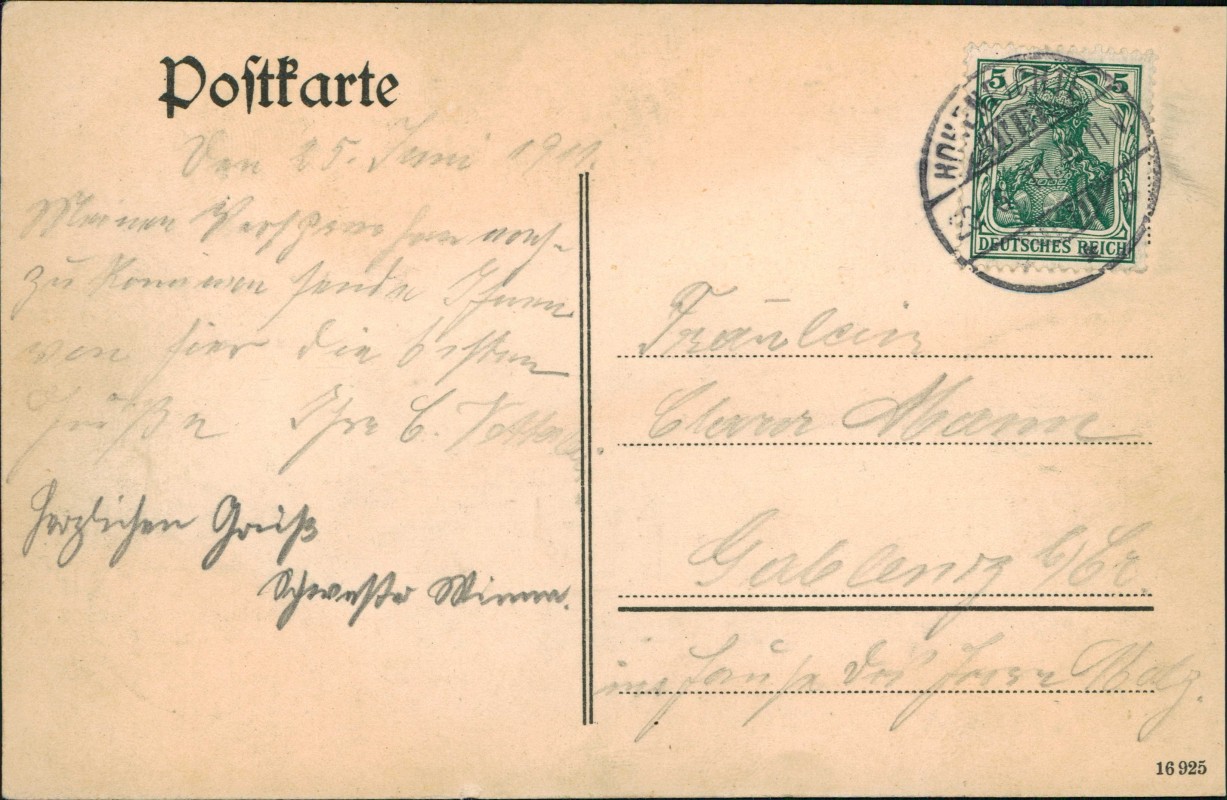 Postkarte
Den 25. Juni 1911.
Meinen Versprechen nach-
zu kommen sende Ihnen
von hier die besten
Grüße Ihre C.
herzlichen Gruß
Schwester Minna.
5 5
DEUTSCHES REICH
Fräulein
Clara Mann
Gablenz b/Ch.
im Hause des Herrn
16 925